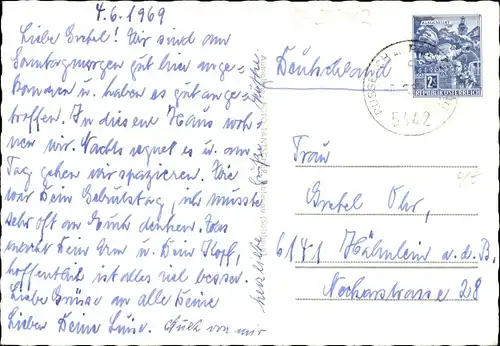 4.6.1969
Liebe Gretel! Wir sind am
Sonntagmorgen gut hier ange-
kommen u. haben es gut ange-
troffen. In diesem Haus woh-
nen wir. Nachts regnet es u. am
Tag gehen wir spazieren. Wie
war Dein Geburtstag, ich musste
sehr oft an Euch denken. Was
macht Dein Arm u. Dein Kopf,
hoffentlich ist alles viel besser.
Liebe Grüsse an alle Deine
Lieben Deine Luise. Auch von mir
herzliche Grüße
Deutschland
Frau
Gretel Ohr,
6141 Hähnlein a.d.B.
Neckarstrasse 28
REPUBLIK ÖSTERREICH
5442